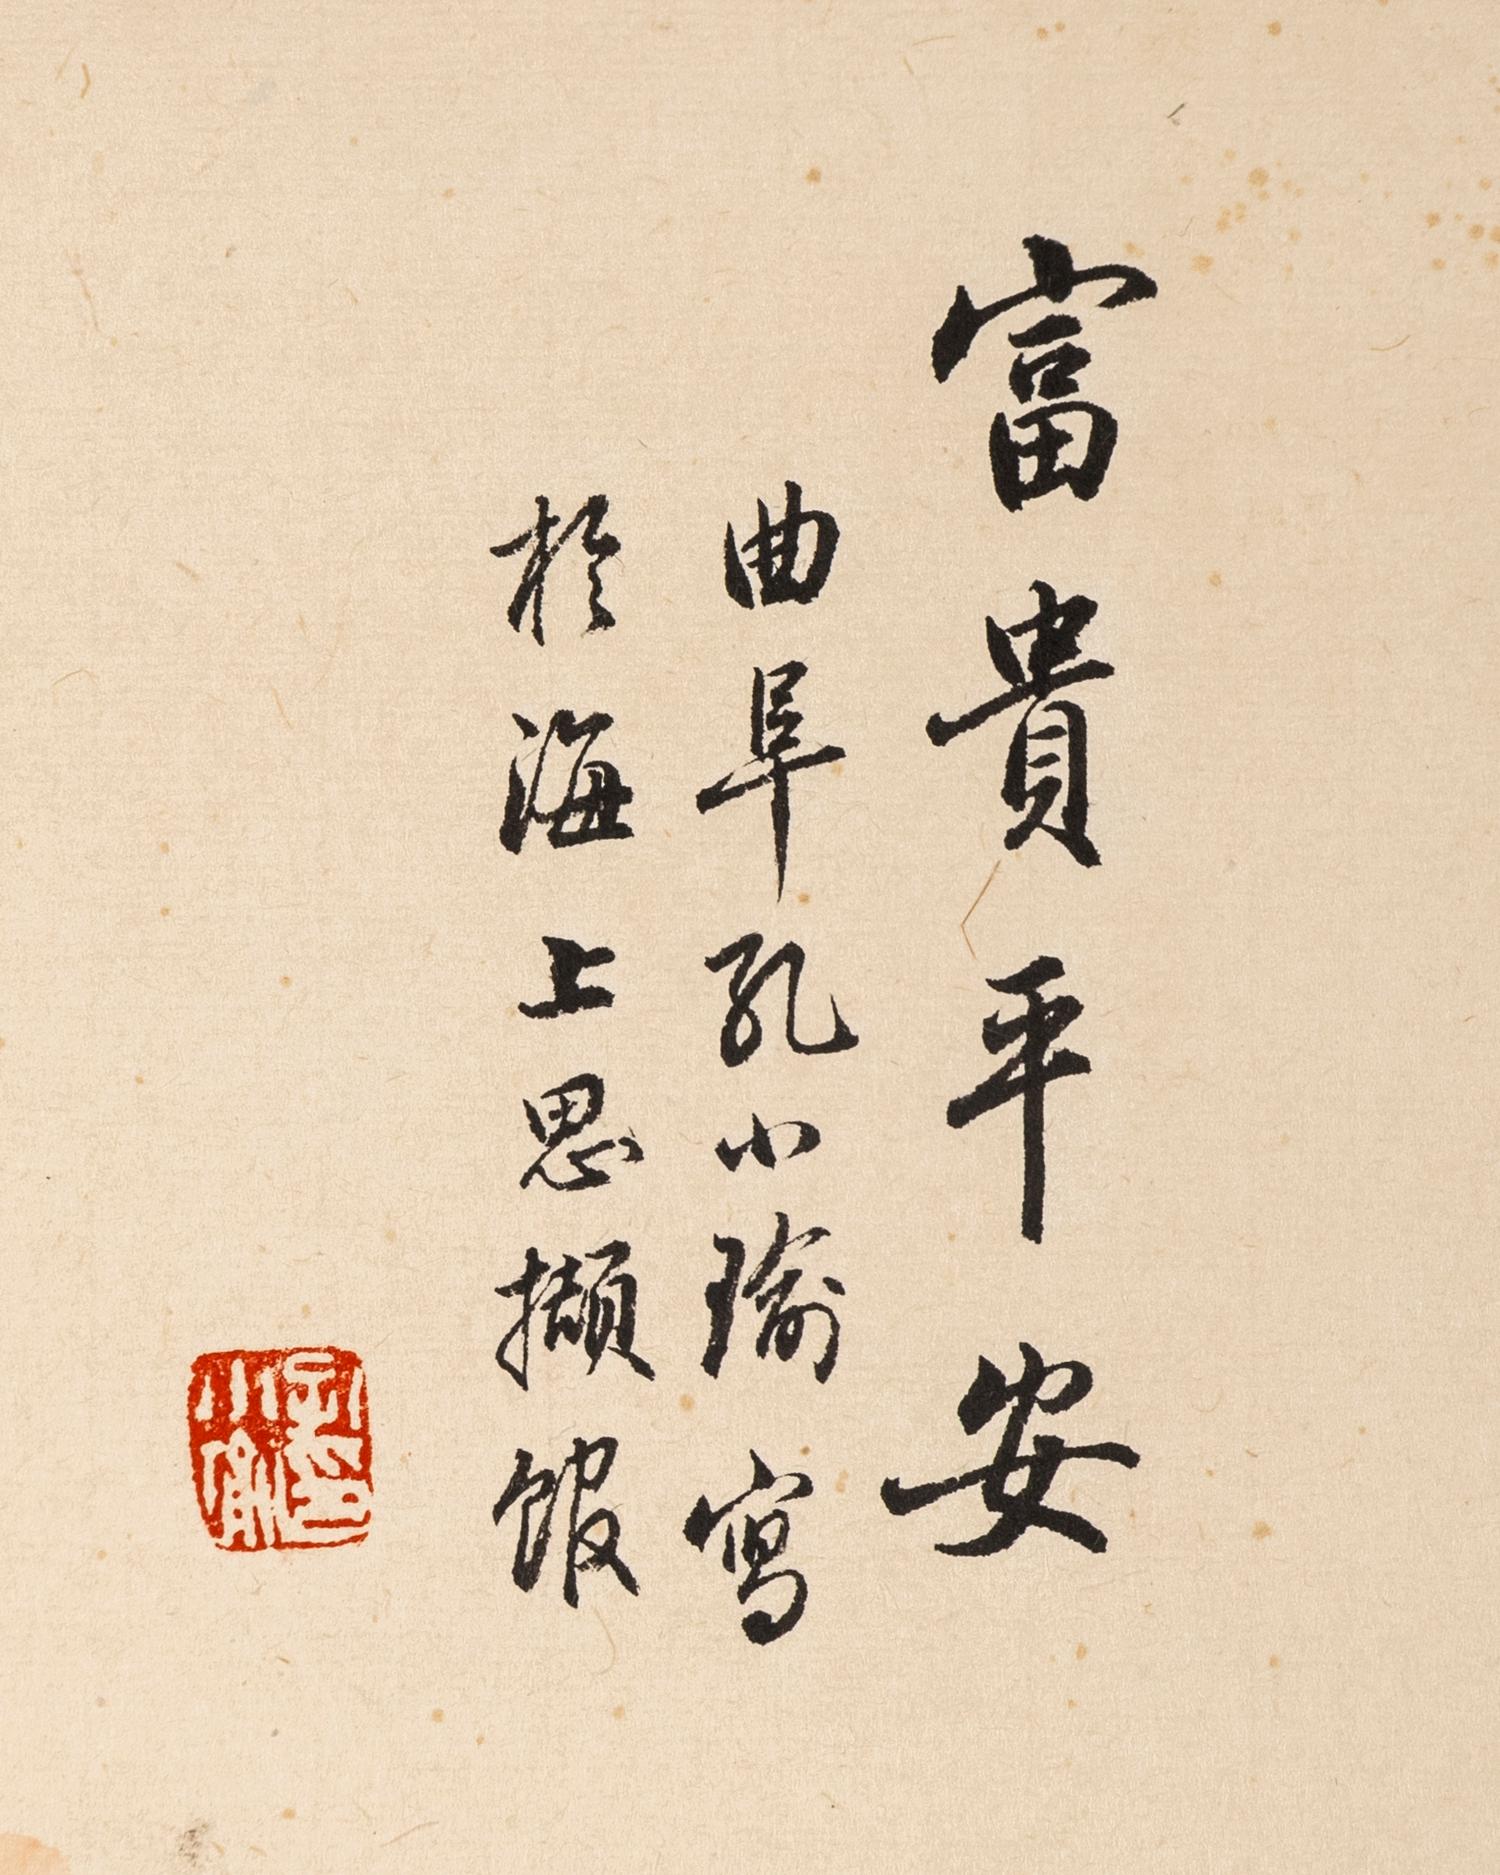 富貴平安
曲阜孔小瑜寫
於海上思擷館
孔小瑜